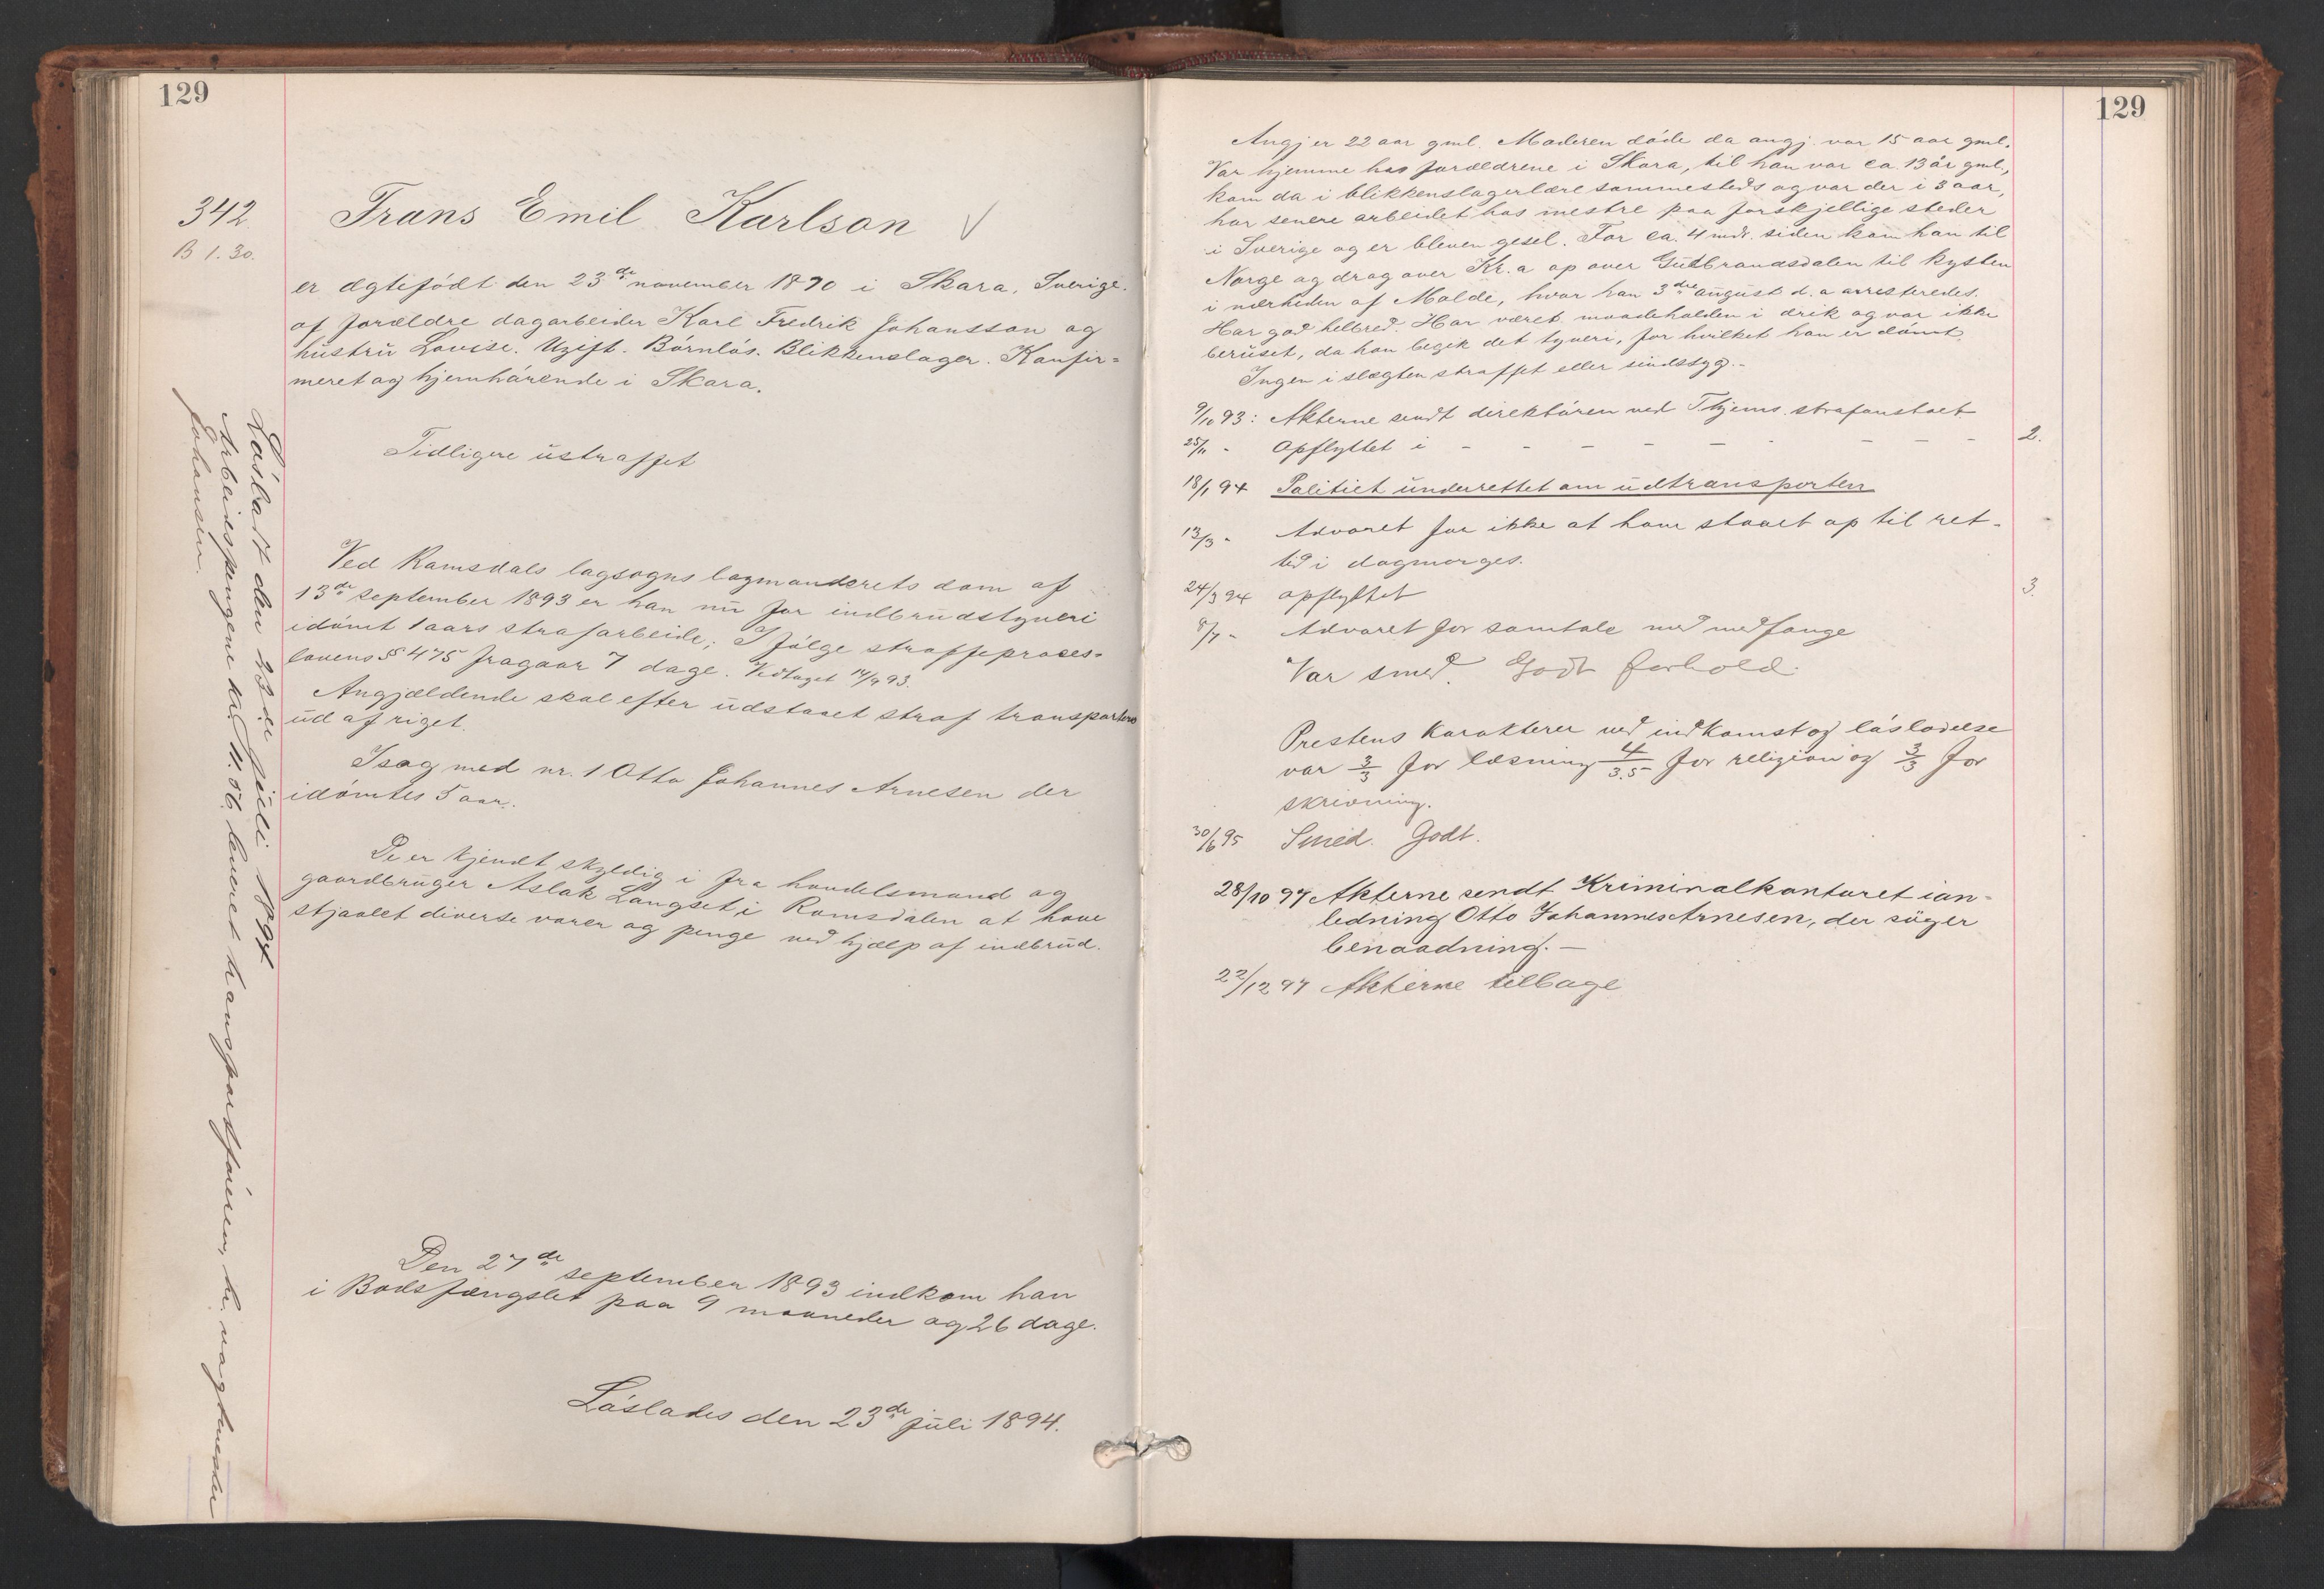 129
342
B 1. 30.
Frans Emil Karlson
er ægtefødt den 23de november 1870 i Skara, Sverige.
af forældre dagarbeider Karl Fredrik Johansson og
hustru Lovise. Ugift. Børnløs. Blikkenslager. Konfir=
meret og hjemhørende i Skara.
Tidligere ustraffet
Ved Romsdals lagsogns lagmandsrets dom af
13de september 1893 er han nu for indbrudstyveri
idømt 1 aars strafarbeide; Ifølge straffeproces=
lovens § 475 fragaar 7 dage. Vedtaget 14/9 93.
Angjældende skal efter udstaaet straf transporteres
ud af riget.
I sag med nr. 1 Otto Johannes Arnesen der
idømtes 5 aar.
De er kjendt skyldig i fra handelsmand og
gaardbruger Aslak Langset i Romsdalen at have
stjaalet diverse varer og penge ved hjælp af indbrud.
Den 27de september 1893 indkom han
i Bodsfængslet paa 9 maaneder og 26 dage.
Løslades den 23de juli 1894.
Løsladt den 23de juli 1894
Arbeidspengene kr. 11.06 leveret transportføreren, h. vagtmester
Johansen.
129
Angj er 22 aar gml. Moderen døde da angj. var 15 aar gml.
Var hjemme hos forældrene i Skara, til han var ca. 13 år gml.,
kom da i blikkenslagerlære sammesteds og var der i 3 aar,
har senere arbeidet hos mestre paa forskjellige steder
i Sverige og er bleven gesel. For ca. 4 mdr. siden kom han til
Norge og drog over Kr.a op over Gudbrandsdalen til kysten
i nærheden af Molde, hvor han 3die august d. a arresteredes.
Har god helbred. Har været maadeholden i drik og var ikke
beruset, da han begik det tyveri, for hvilket han er dømt.
Ingen i slægten straffet eller sindssyg.-
9/10 93: Akterne sendt direktøren ved T.hjems. strafanstalt
25/11 - Opflyttet i - - - - - - - - 2.
18/1 94 Politiet underrettet om udtransporten
13/3 - Advaret for ikke at have staaet op til ret-
tid i dagmorges.
24/3 94 opflyttet 3.
8/7 - Advaret for samtale med medfange
Var smed. Godt forhold.
Prestens karakterer ved indkomst og løsladelse
var 3/3 for læsning 4/3.5 for religion og 3/3 for
skrivning.
30/6 95 Smed. Godt.
28/10 97 Akterne sendt Kriminalkontoret i an=
ledning Otto Johannes Arnesen, der søger
benaadning. —
22/12 97 Akterne tilbage